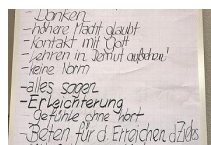 - Danken
- höhere Macht glaubt
- Kontakt mit Gott
- Lehren in Demut
- keine Norm
- alles sagen
- Erleichterung
Gefühle ohne Wort
- Beten für d Erreichen d Ziels